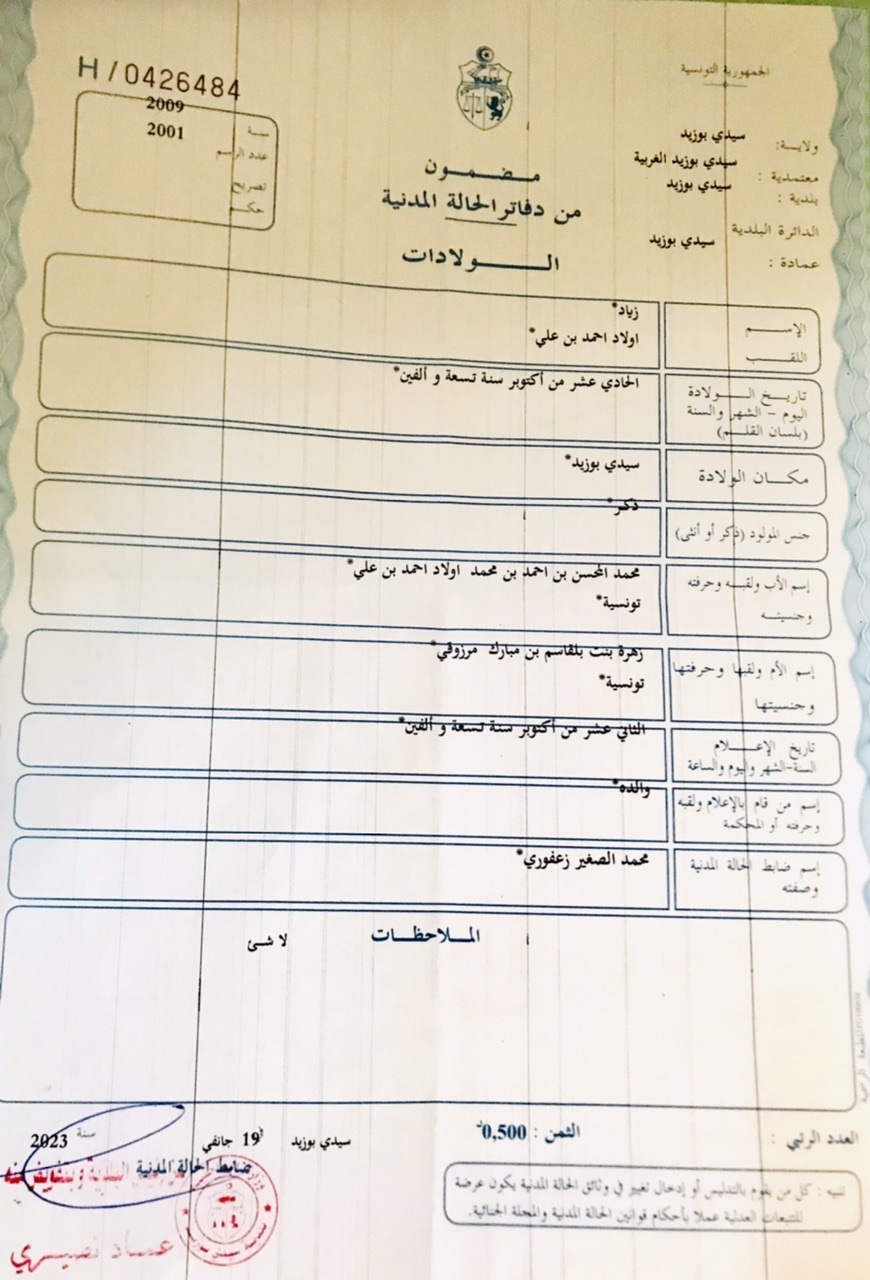 الجمهورية التونسية
H/0426484
ولاية: سيدي بوزيد
معتمدية: سيدي بوزيد الغربية
بلدية: سيدي بوزيد
الدائرة البلدية سيدي بوزيد
عمادة:
سنة 2009
عدد الرسم 2001
تصريح
حكم
مضمون
من دفاتر الحالة المدنية
الولادات
الإسم زياد*
اللقب اولاد احمد بن علي*
تاريخ الولادة الحادي عشر من أكتوبر سنة تسعة و ألفين*
اليوم - الشهر والسنة
(بلسان القلم)
مكان الولادة سيدي بوزيد*
جنس المولود (ذكر أو أنثى) ذكر*
إسم الأب ولقبه وحرفته محمد المحسن بن احمد بن محمد اولاد احمد بن علي*
وجنسيته تونسية*
إسم الأم ولقبها وحرفتها زهرة بنت بلقاسم بن مبارك مرزوقي*
وجنسيتها تونسية*
تاريخ الإعلام الثاني عشر من أكتوبر سنة تسعة و ألفين*
السنة-الشهر واليوم والساعة
إسم من قام بالإعلام ولقبه والده*
وحرفته أو المحكمة
إسم ضابط الحالة المدنية محمد الصغير زعفوري*
وصفته
الملاحظات
لا شئ
العدد الرتبي :
الثمن : 0,500د
سيدي بوزيد في 19 جانفي سنة 2023
ضابط الحالة المدنية
البلدية وبتفويض منه
عماد نصيري
تنبيه : كل من يقوم بالتدليس أو إدخال تغيير في وثائق الحالة المدنية يكون عرضة
للتتبعات العدلية عملا بأحكام قوانين الحالة المدنية والمجلة الجنائية.